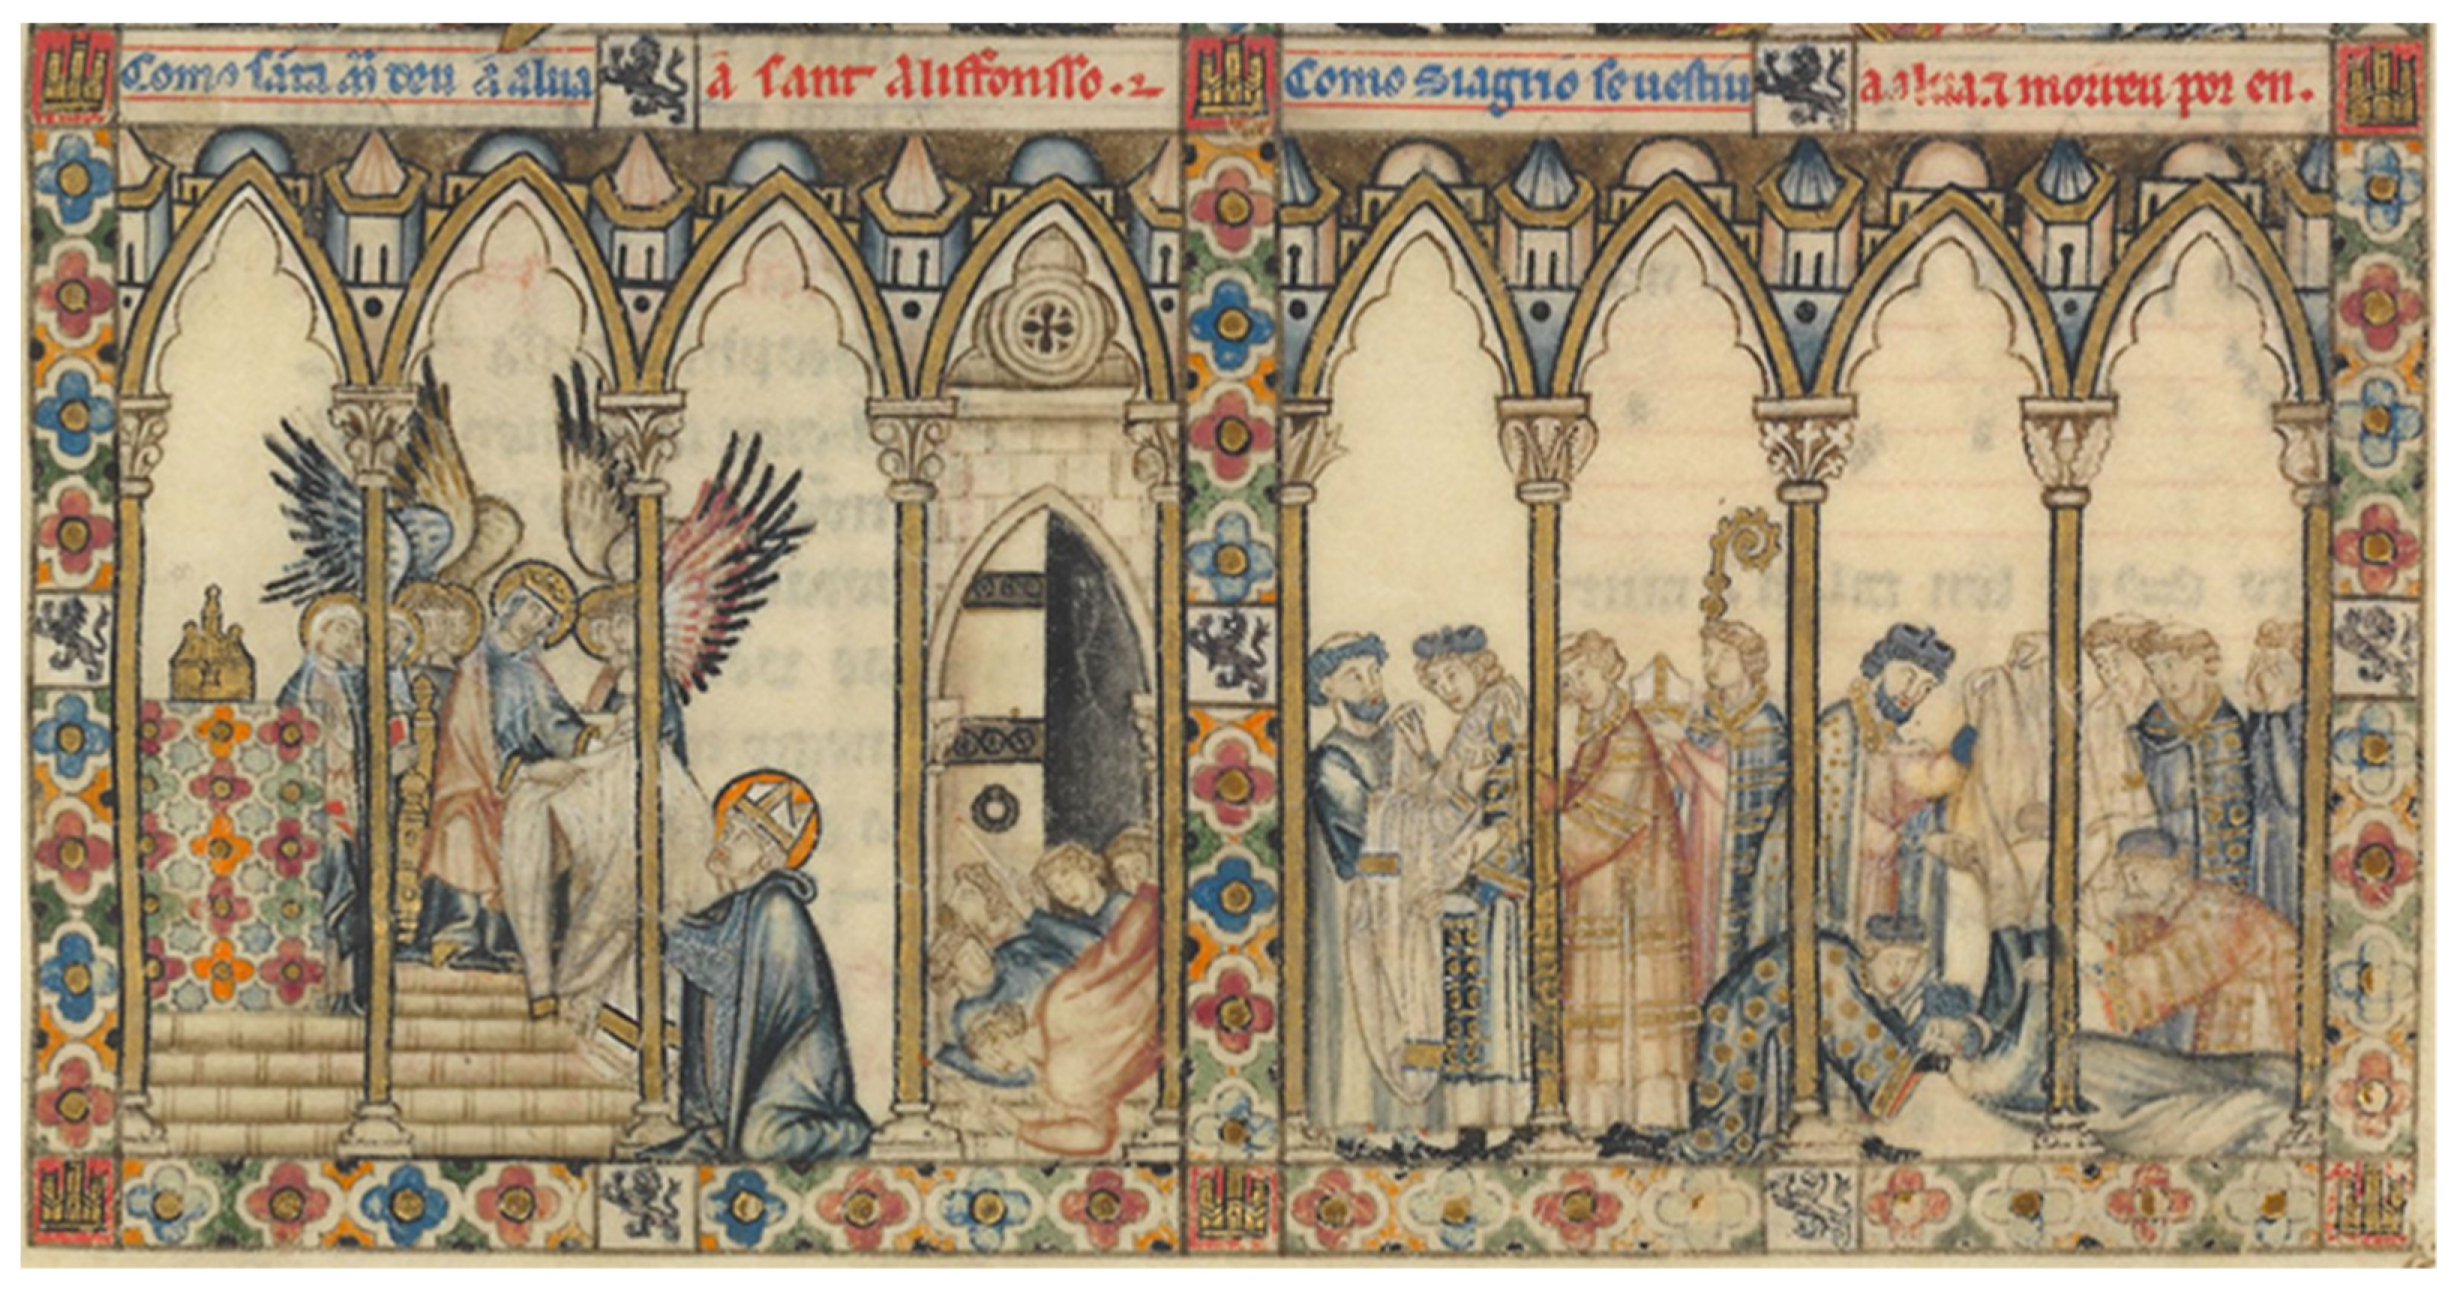 Como sãta mã deu a alua a sant Aliffonsso. ⁊
Como Siagrio se uestiu a alua. ⁊ morreu por en.